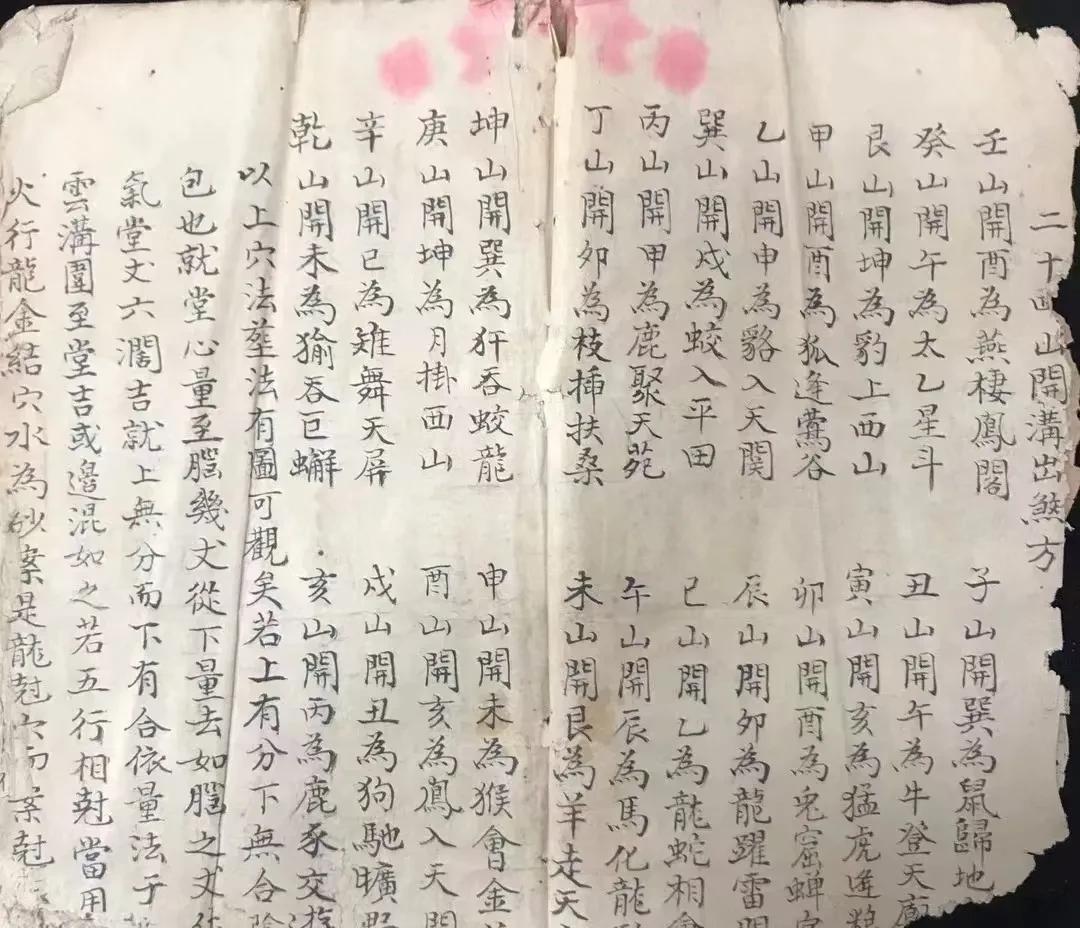 二十四山開溝出煞方
壬山開酉為燕棲鳳閣 子山開巽為鼠歸地
癸山開午為太乙星斗 丑山開午為牛登天廟
艮山開坤為豹上西山 寅山開亥為猛虎逢
甲山開酉為狐逢鶯谷 卯山開酉為兎窟蟬
乙山開申為貉入天関 辰山開卯為龍躍雷門
巽山開戌為蛟入平田 巳山開乙為龍蛇相會
丙山開甲為鹿聚天苑 午山開辰為馬化龍
丁山開卯為枝揷扶桑 未山開艮為羊走天
坤山開巽為犴吞蛟龍 申山開未為猴會金
庚山開坤為月掛西山 酉山開亥為鳳入天門
辛山開巳為雉舞天屏 戌山開丑為狗馳曠野
乾山開未為㺄吞巨蠏 亥山開丙為鹿豕交遊
以上穴法塟法有圖可觀矣若上有分下無合
包也就堂心量至腦幾丈從下量去如腦之丈
氣堂丈六濶吉就上無分而下有合依量法于
雲溝圍至堂吉或邉混如之若五行相尅當用
火行龍金結穴水為砂案是龍尅穴而案尅